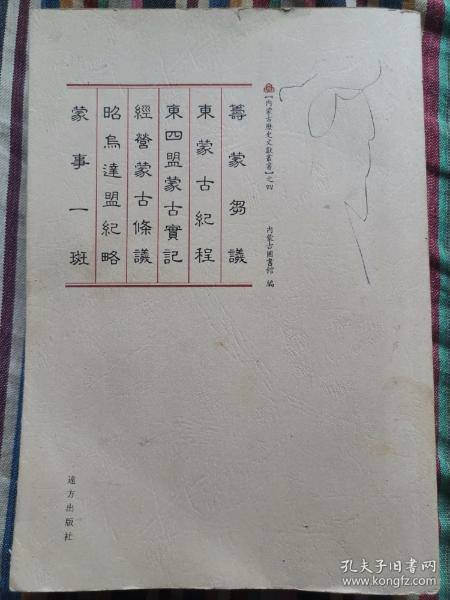 【内蒙古歷史文獻叢書】之四
內蒙古圖書館 編
籌蒙芻議
東蒙古紀程
東四盟蒙古實記
經營蒙古條議
昭烏達盟紀略
蒙事一斑
遠方出版社
孔夫子旧书网
www.kongfz.com